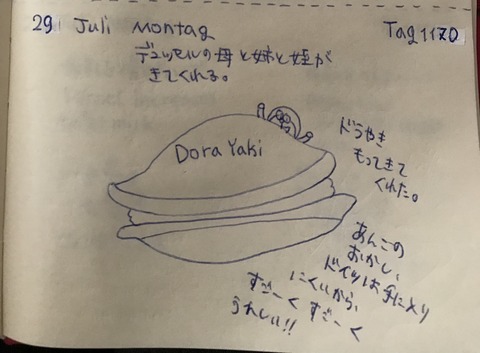 29 Juli Montag
Tag 1170
デュッセルの母と妹と姪が
きてくれる。
Dora Yaki
ドラやき
もってきて
くれた。
あんこの
おかし、
ドイツは手に入り
にくいから、
すごーく すごーく
うれしい!!